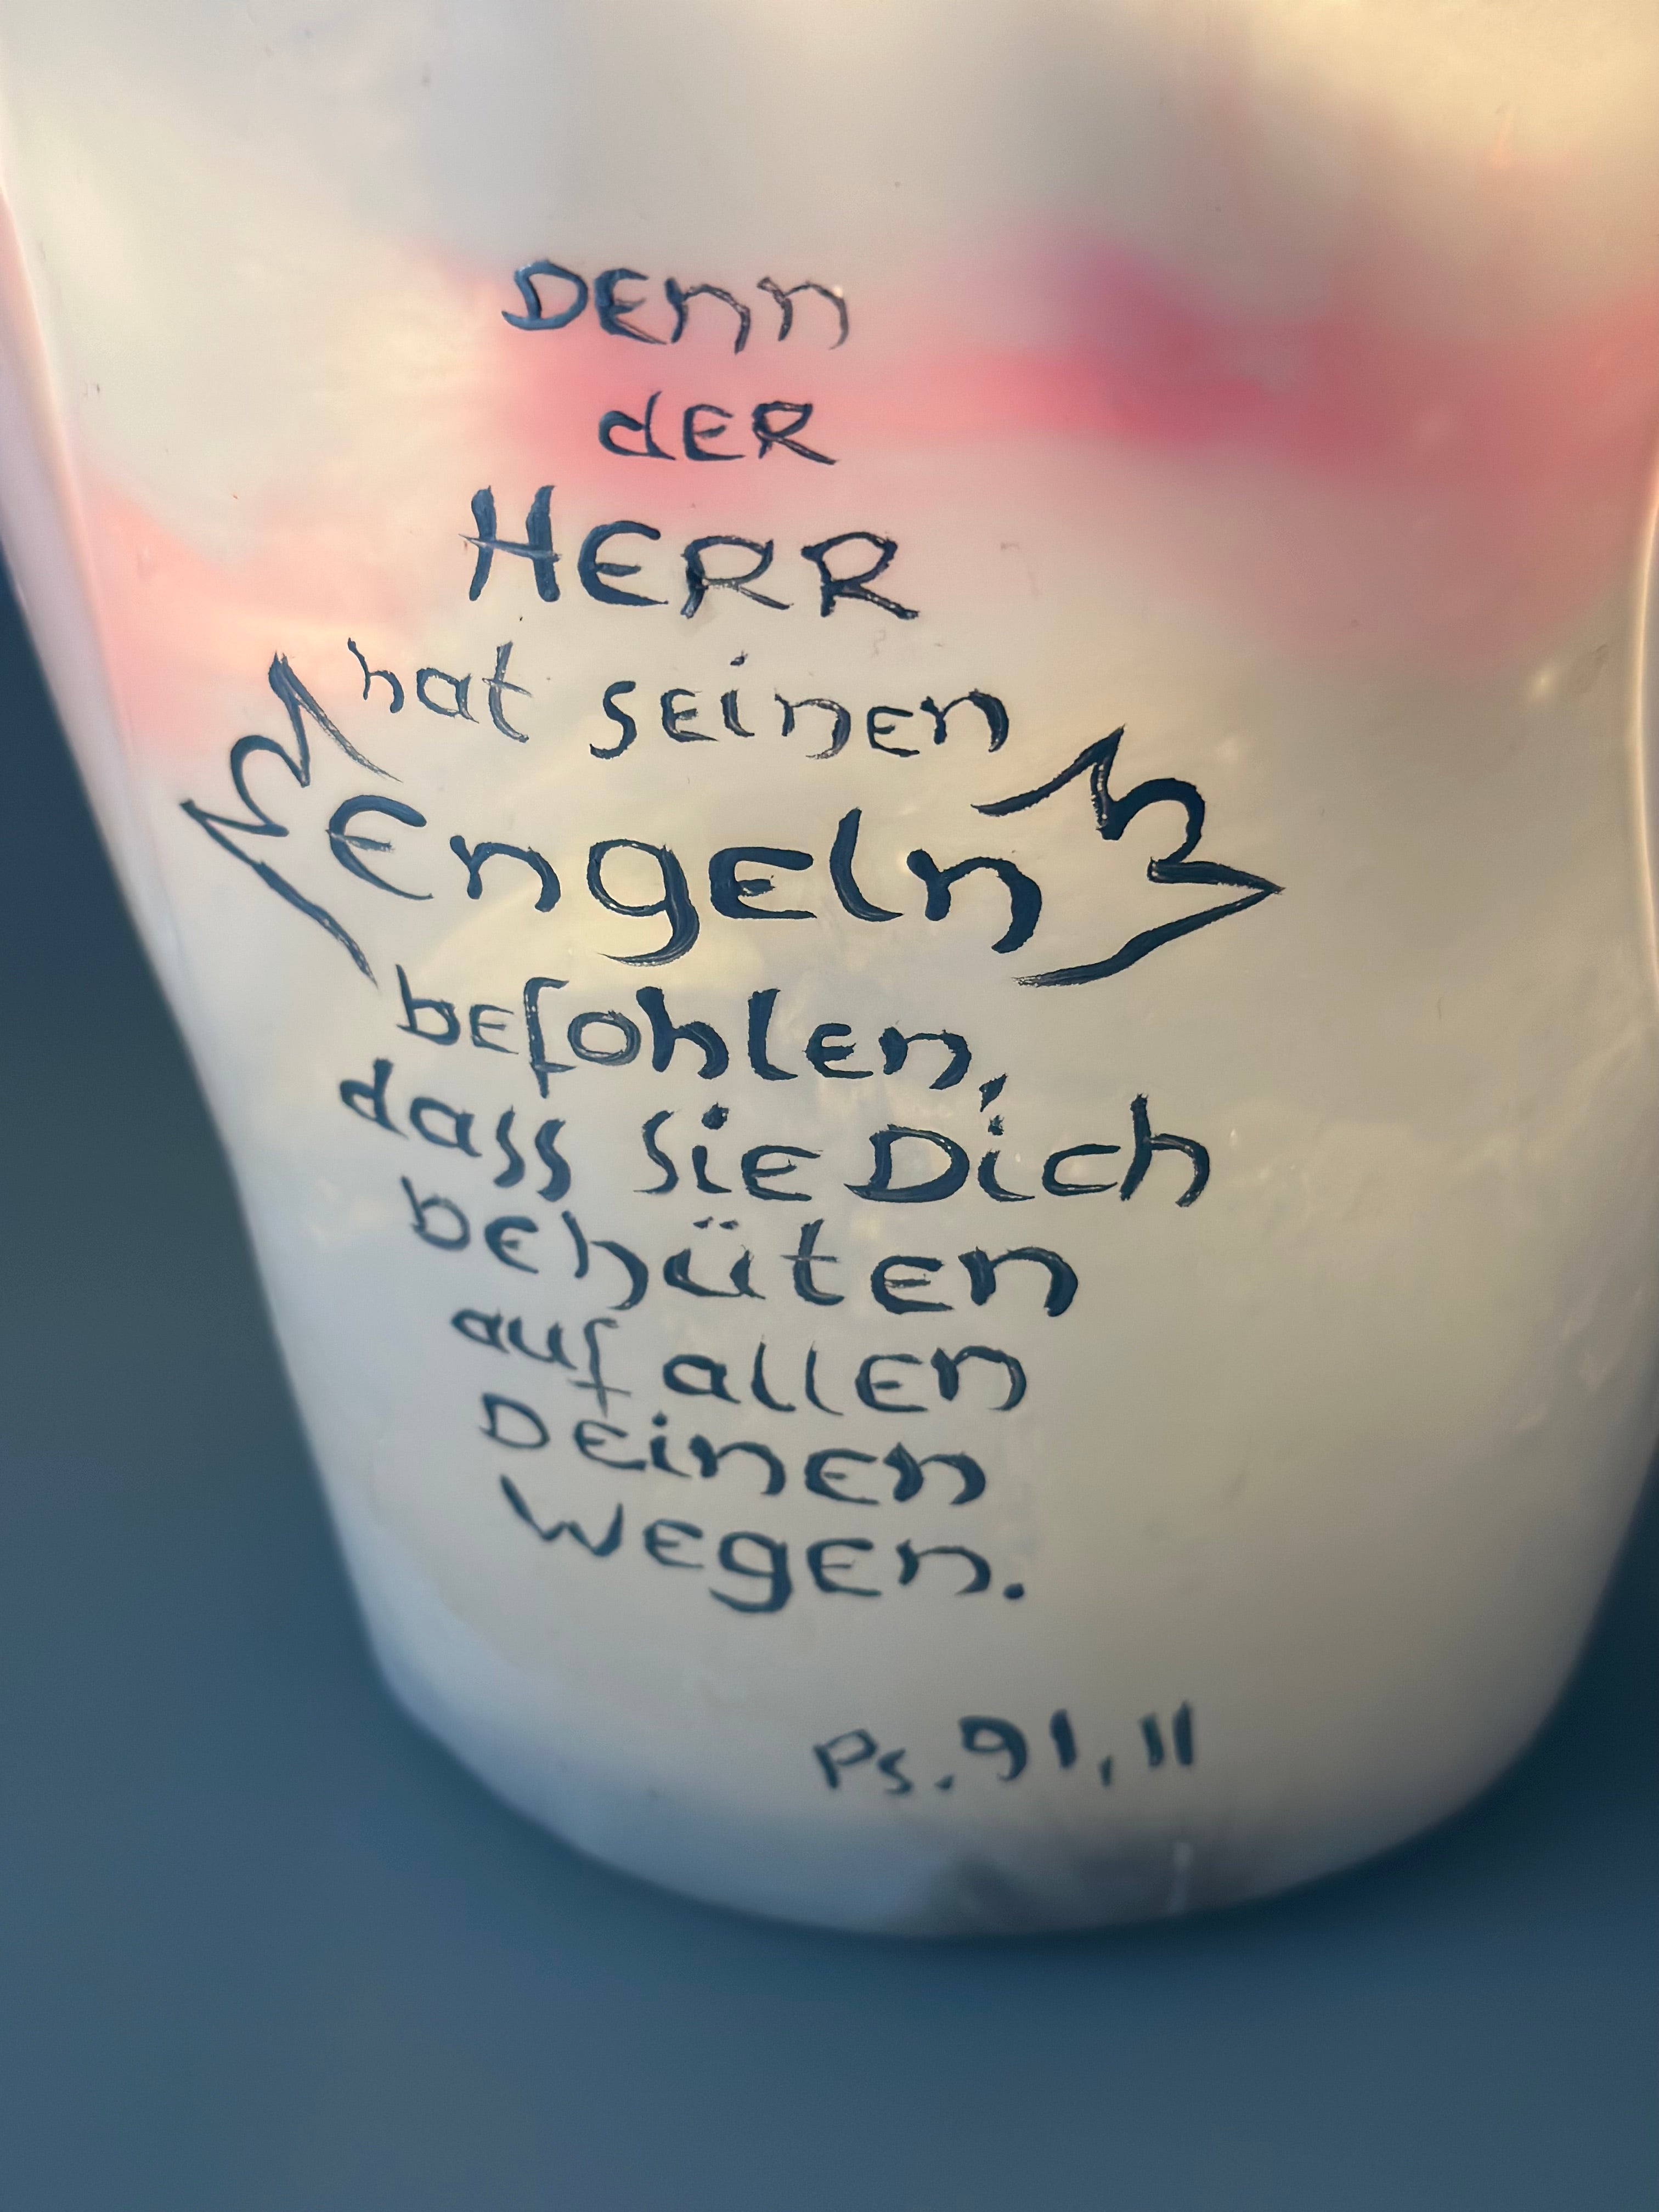 Denn
der
HERR
hat seinen
Engeln
befohlen,
dass sie Dich
behüten
auf allen
Deinen
Wegen.
Ps. 91, 11